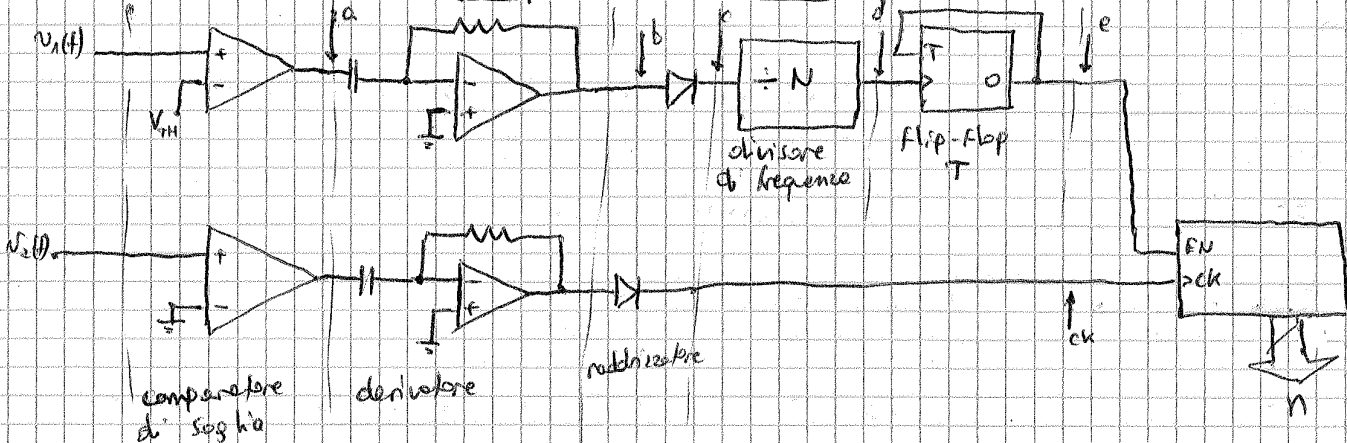 v₁(t)
+
-
V_TH
a
-
+
b
c
÷ N
divisore
di frequenza
d
T
Q
flip-flop
T
e
v₂(t)
+
-
comparatore
di soglia
-
+
derivatore
raddrizzatore
ck
EN
>CK
n